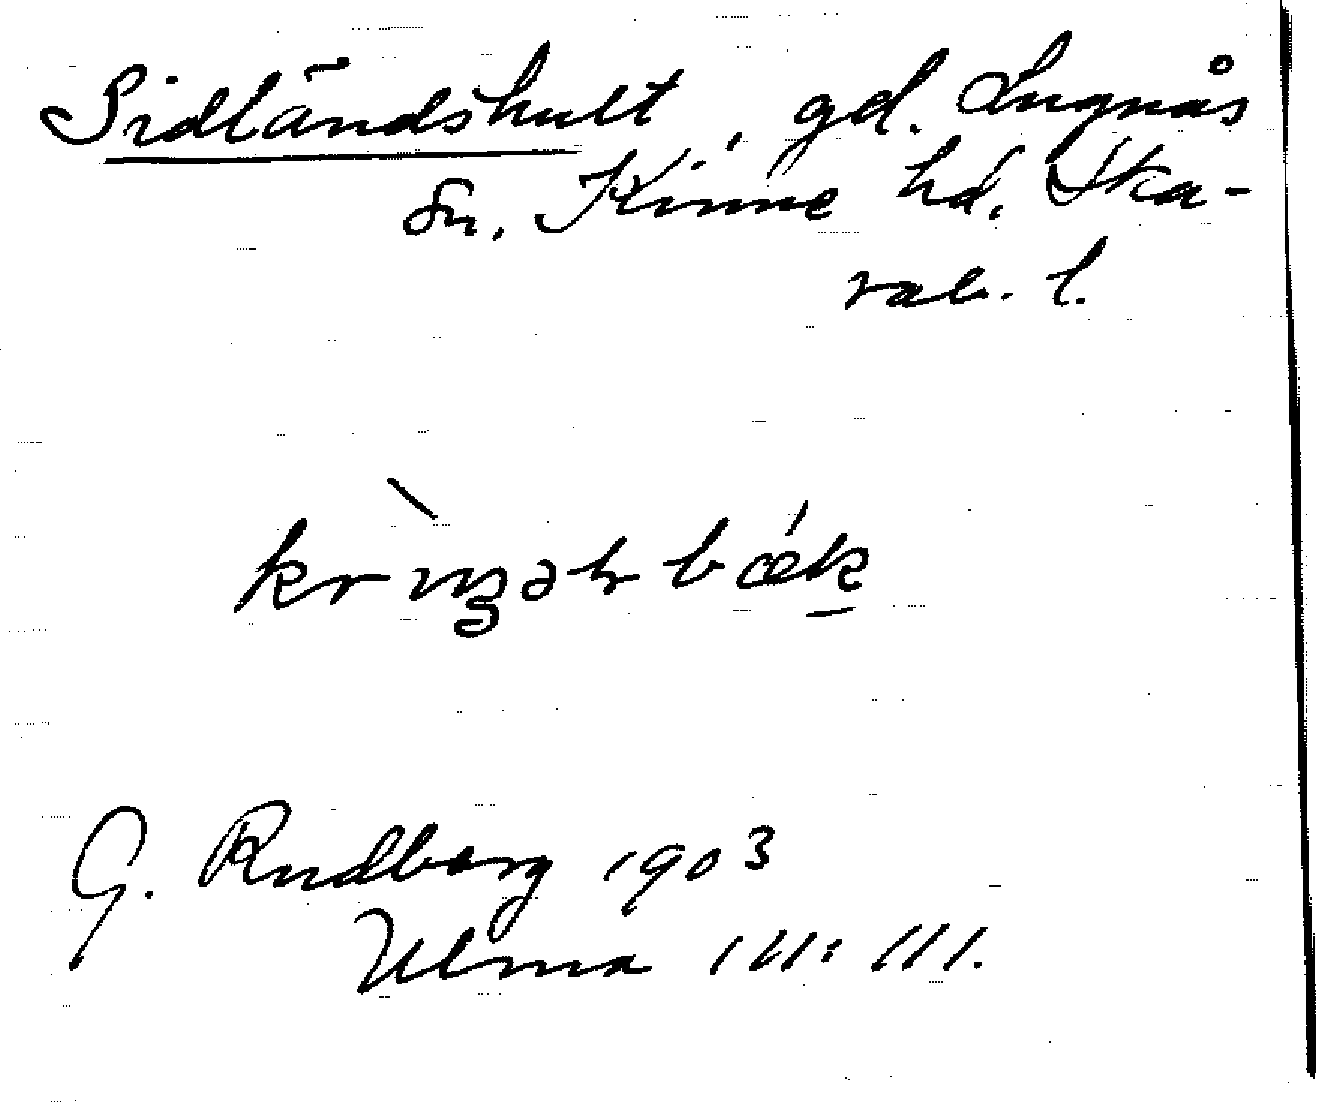 Sidländshult, gd. Lugnås
sn. Kinne hd. Ska-
rab. l.
G. Rudberg 1903
Ulma 141: 111.